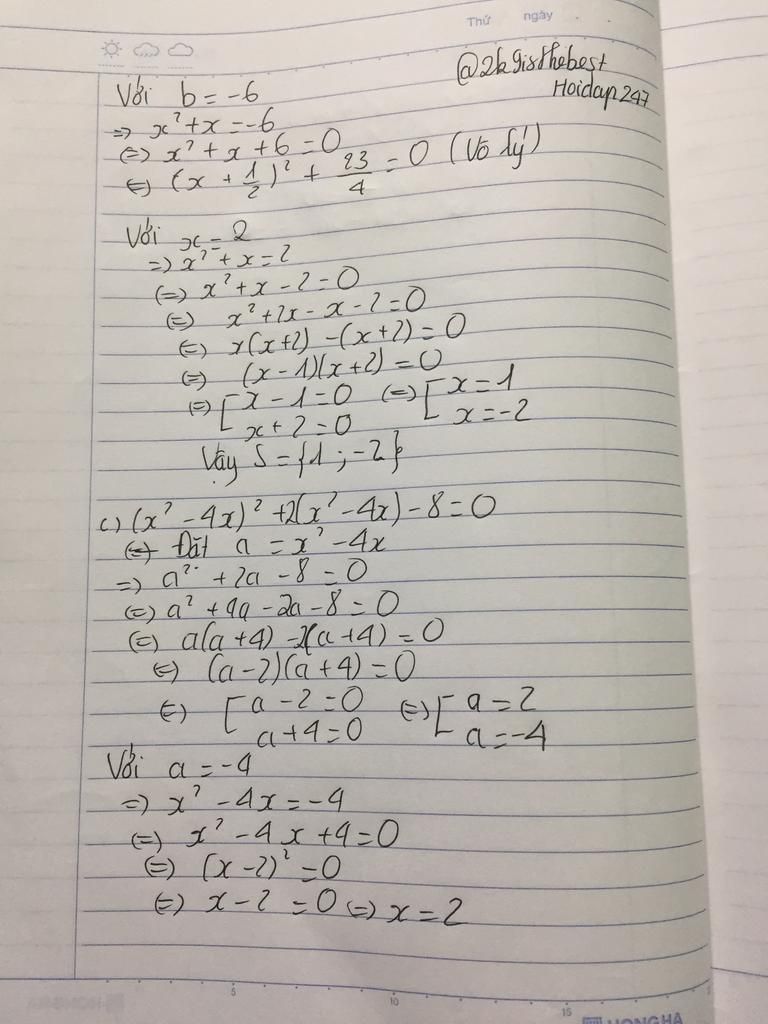 Thứ ngày
@2k9isthebest
Hoidap247
Với b = -6
=> x² + x = -6
(=) x² + x + 6 = 0
(=) (x + 1/2)² + 23/4 = 0 (Vô lý)
Với x = 2
=> x² + x = 2
(=) x² + x - 2 = 0
(=) x² + 2x - x - 2 = 0
(=) x(x+2) - (x+2) = 0
(=) (x-1)(x+2) = 0
(=) [ x - 1 = 0 (=) [ x = 1
x + 2 = 0 x = -2
Vậy S = {1 ; -2}
c) (x² - 4x)² + 2(x² - 4x) - 8 = 0
Đặt a = x² - 4x
=> a² + 2a - 8 = 0
(=) a² + 4a - 2a - 8 = 0
(=) a(a+4) - 2(a+4) = 0
(=) (a-2)(a+4) = 0
(=) [ a - 2 = 0 (=) [ a = 2
a + 4 = 0 a = -4
Với a = -4
=> x² - 4x = -4
(=) x² - 4x + 4 = 0
(=) (x-2)² = 0
(=) x - 2 = 0 (=) x = 2
5 10 15
HONGHA